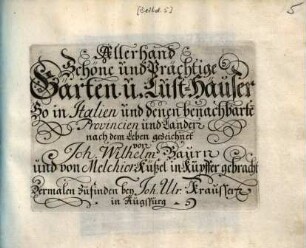 [Bathd. 5]
5
Allerhand
Schöne und Prächtige
Garten. u. Lust-Häuser
So in Italien und denen benachbarte
Provincien und Länder
nach dem Leben gezeichnet
von
Joh. Wilhelm Baurn
und von Melchior Küsel in Kupffer gebracht
Dermalen zufinden bey Joh. Ulr. Kraussen
in Augspurg